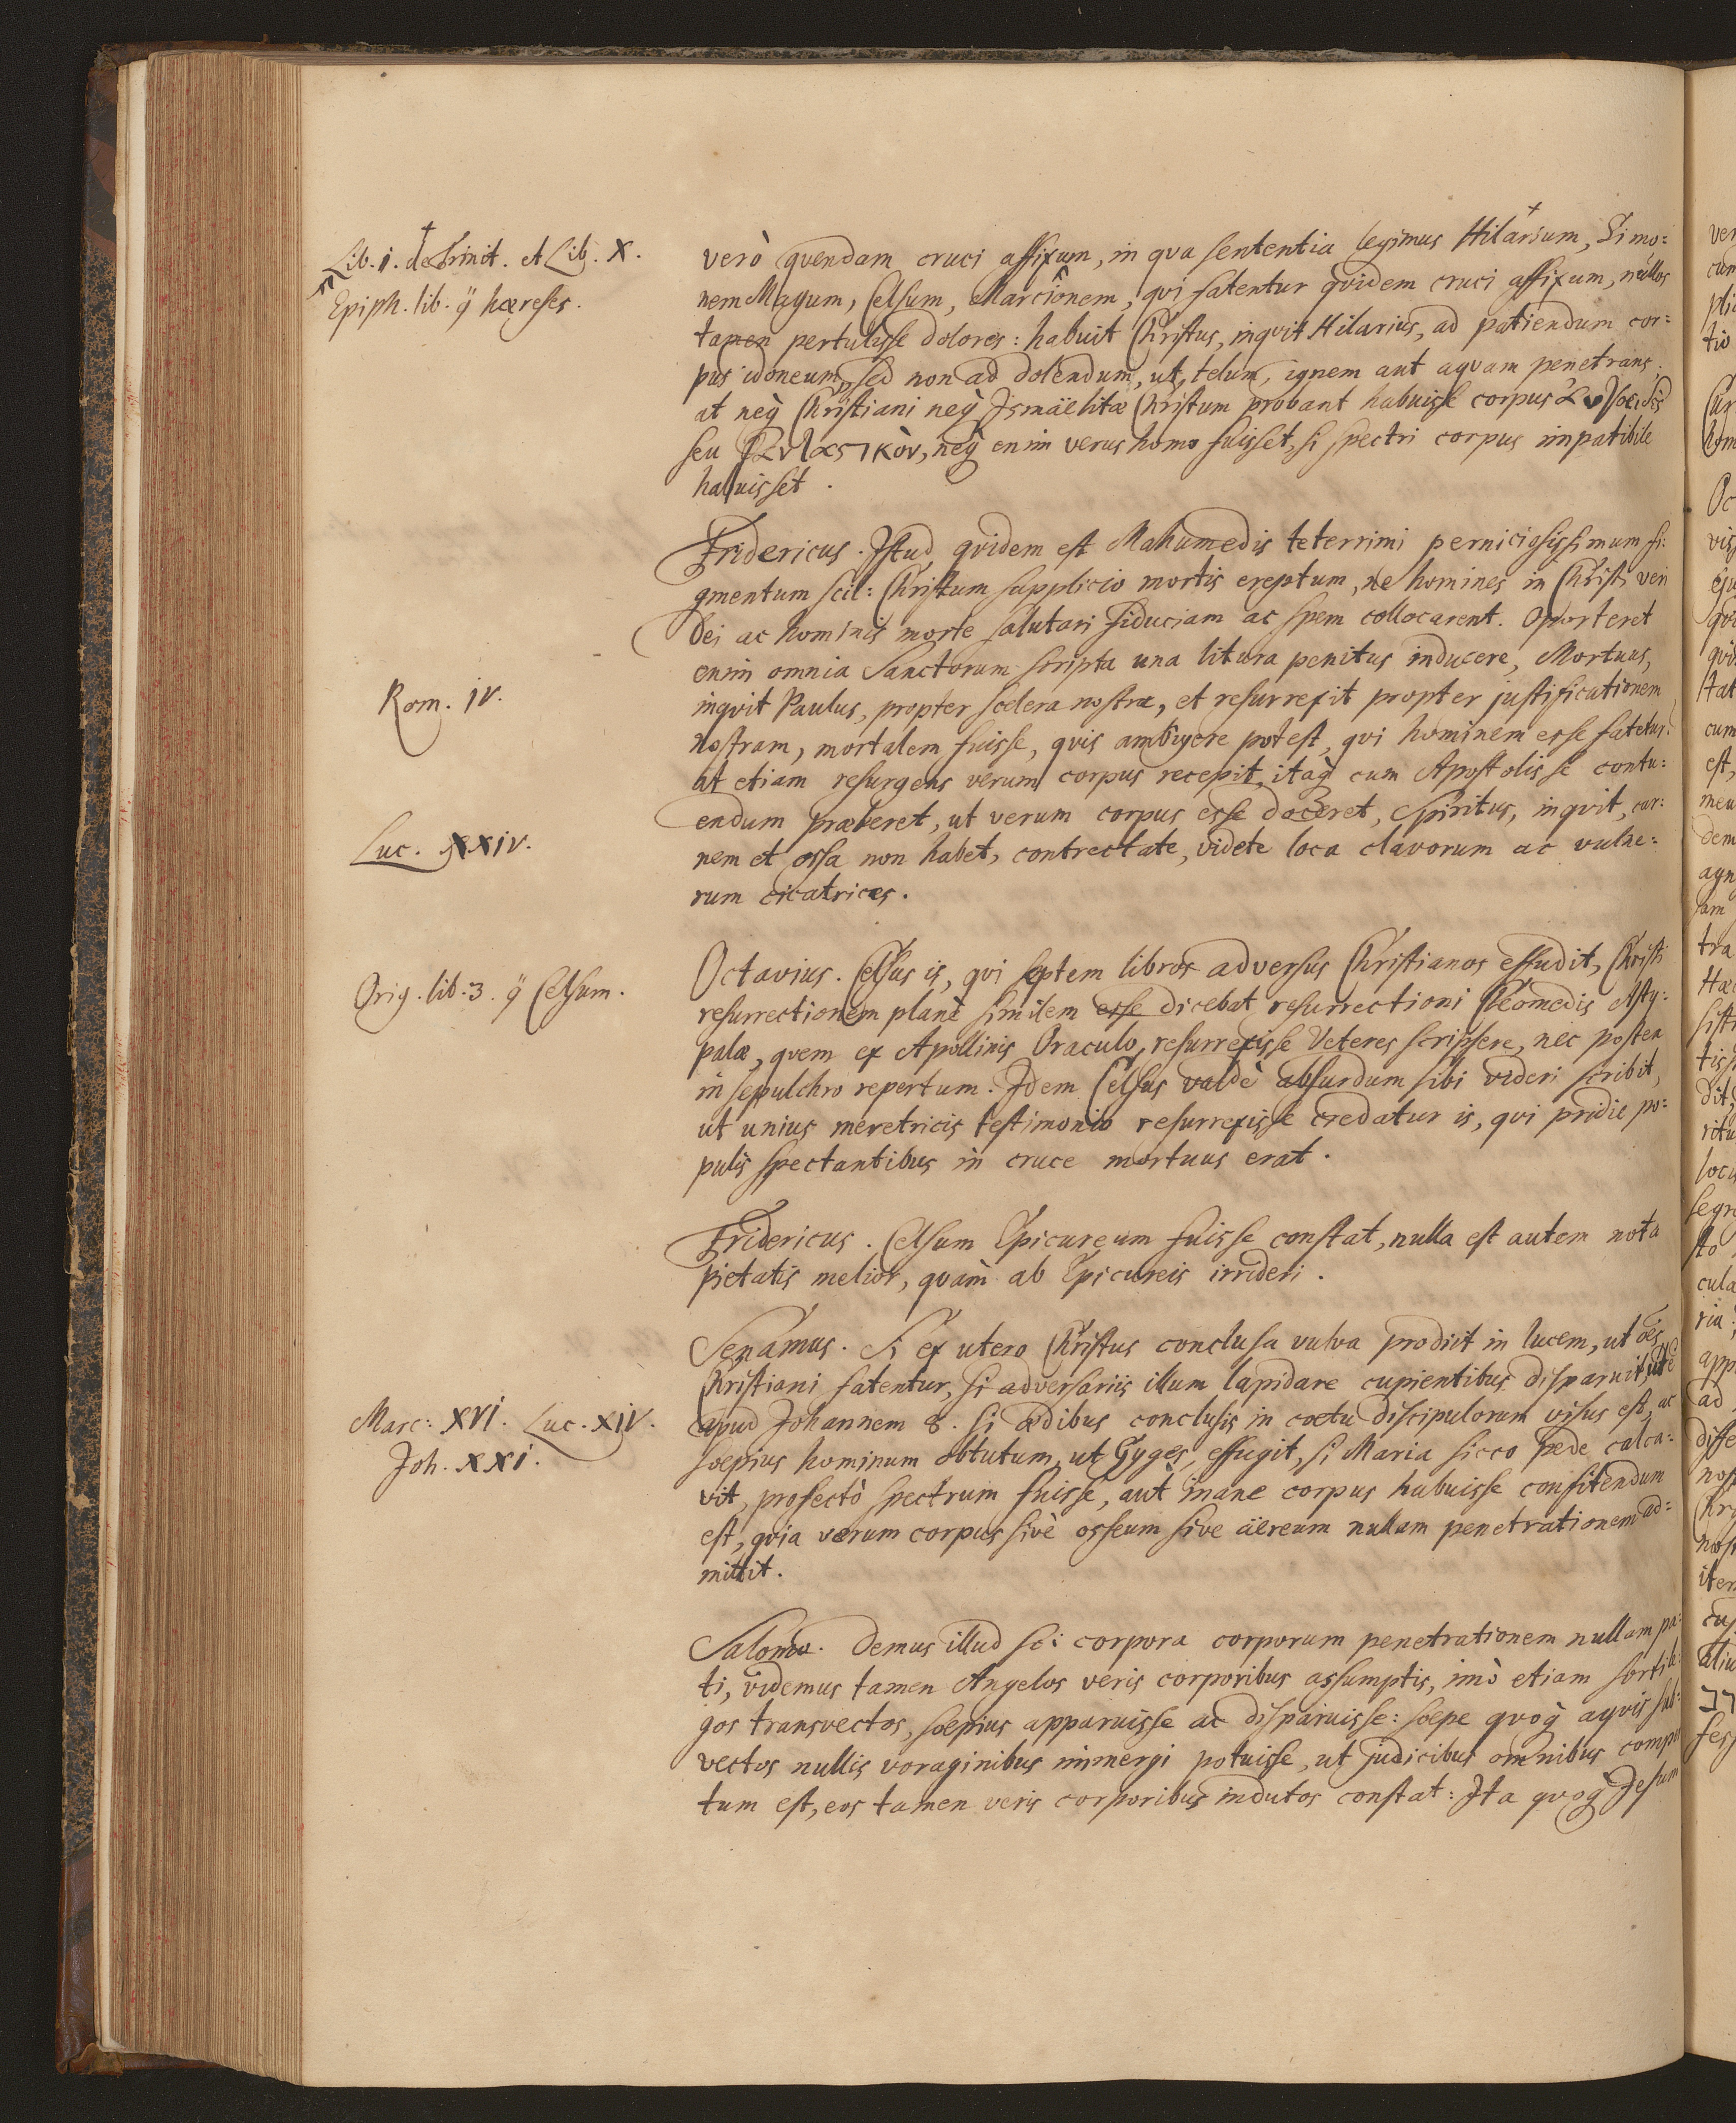 Lib. 1. de Trinit. et Lib. X.
Epiph. lib. ÿ hæreses.
verò quendam cruci affixum, in qva sententia legimus Hilarium, Simo:
nem Magum, Celsum, Marcionem, qvi fatentur qvidem cruci affixum, nullos
tamen pertulisse dolores: habuit Christus, inqvit Hilarius, ad patiendum cor:
pus idoneum, sed non ad dolendum, ut, telum, ignem aut aqvam penetrans.
at neq̀ Christiani neq̀ Ismäelitæ Christum probant habuisse corpus
seu neq̀ enim verus homo fuisset, si spectri corpus impatibile
habuisset.
Fridericus. Istud qvidem est Mahumedis teterrimi perniciosissimum fi:
gmentum scil: Christum supplicio mortis ereptum, ne homines in Christi veri
Dei ac hominis morte salutari fiduciam ac spem collocarent. Oporteret
enim omnia Sanctorum scripta una litura penitus inducere, Mortuus,
Rom. IV.
inqvit Paulus, propter scelera nostra, et resurrexit propter justificationem
nostram, mortalem fuisse, qvis ambigere potest, qvi hominem esse fatetur?
at etiam resurgens verum corpus recepit, itaq̀ cum Apostolis se contu:
endum præberet, ut verum corpus esse doceret, Spiritus, inqvit, car:
Luc. XXIV.
nem et ossa non habet, contrectate, videte loca clavorum ac vulne:
rum cicatrices.
Octavius. Celsus is, qvi septem libros adversus Christianos effudit, Christi
Orig. lib. 3. ÿ Celsum.
resurrectionem planè similem esse dicebat resurrectioni Cleomedis Asty:
palæ, qvem ex Apollinis Oraculo, resurrexisse Veteres scripsere, nec postea
in sepulchro repertum. Idem Celsus valdè absurdum sibi videri scribit,
ut unius meretricis testimonio resurrexisse credatur is, qvi pridie po:
pulis spectantibus in cruce mortuus erat.
Fridericus. Celsum Epicureum fuisse constat, nulla est autem nota
pietatis melior, qvam ab Epicureis irrideri.
Senamus. Si ex utero Christus conclusa vulva prodiit in lucem, ut oēs
Christiani fatentur, si adversariis illum lapidare cupientibus disparuit, ut ē
Marc: XVI. Luc. XIV.
apud Johannem 8. si ædibus conclusis in coetu discipulorum visus est, ac
Joh. XXI.
soepius hominum obtutum, ut Gyges, effugit, si Maria sicco pede calca:
vit, profectò spectrum fuisse, aut inane corpus habuisse confitendum
est, qvia verum corpus sivè osseum sive äereum nullam penetrationem ad:
mittit.
Salomo. Demus illud sc: corpora corporum penetrationem nullam pa:
ti, videmus tamen Angelos veris corporibus assumptis, imò etiam sortile:
gos transvectos, soepius apparuisse ac disparuisse: soepe qvoq̀ aqvis sub:
vectos nullis voraginibus immergi potuisse, ut judicibus omnibus comper
tum est, eos tamen veris corporibus indutos constat: Ita qvoq̀ Jesum